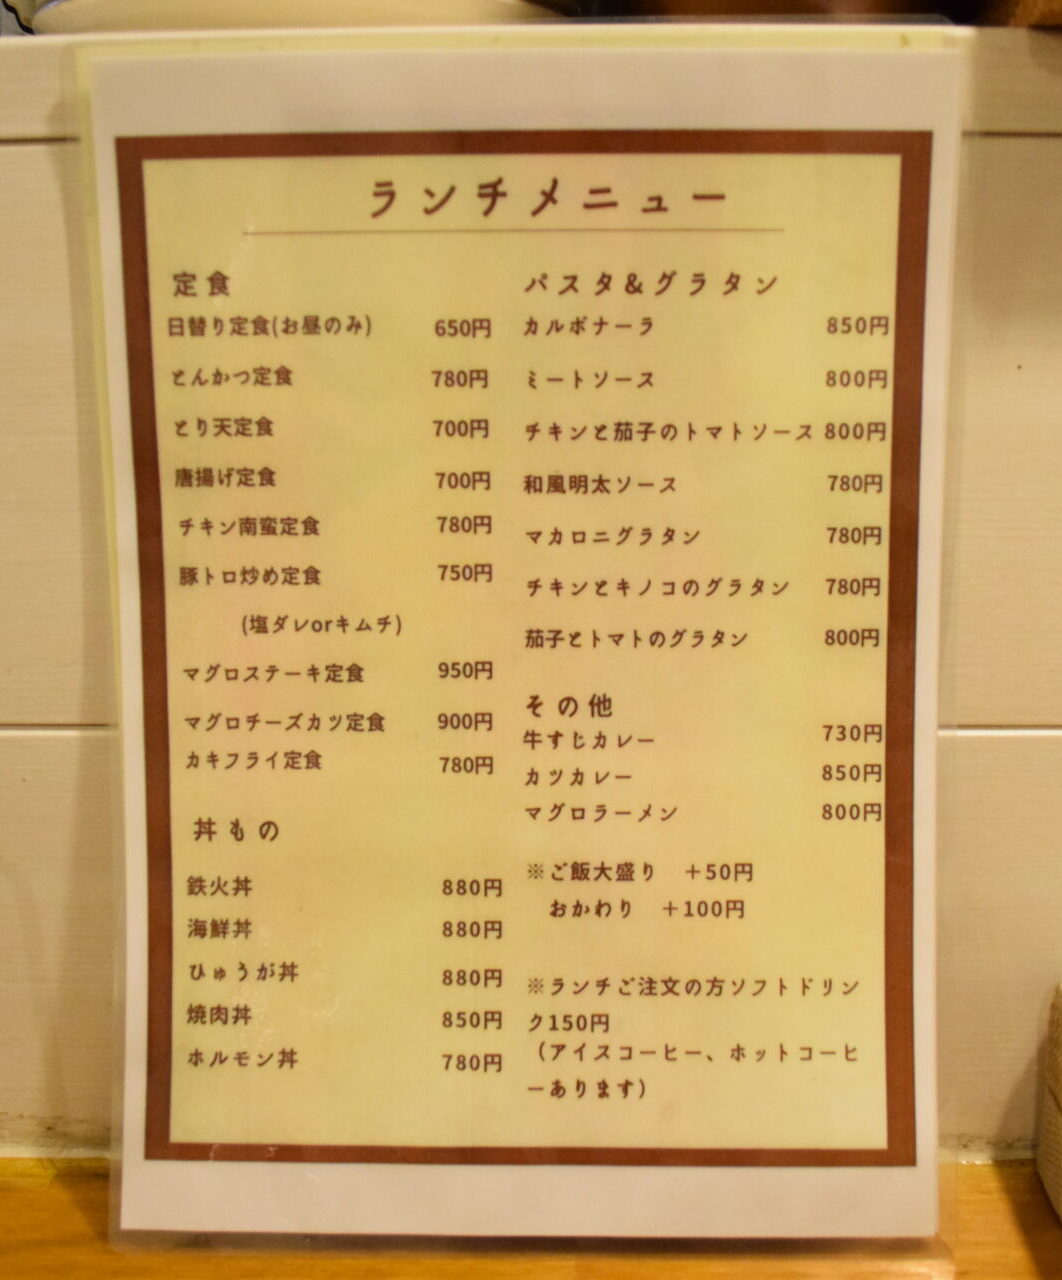 ランチメニュー
定食
日替り定食(お昼のみ) 650円
とんかつ定食 780円
とり天定食 700円
唐揚げ定食 700円
チキン南蛮定食 780円
豚トロ炒め定食 750円
(塩ダレorキムチ)
マグロステーキ定食 950円
マグロチーズカツ定食 900円
カキフライ定食 780円
丼もの
鉄火丼 880円
海鮮丼 880円
ひゅうが丼 880円
焼肉丼 850円
ホルモン丼 780円
パスタ&グラタン
カルボナーラ 850円
ミートソース 800円
チキンと茄子のトマトソース 800円
和風明太ソース 780円
マカロニグラタン 780円
チキンとキノコのグラタン 780円
茄子とトマトのグラタン 800円
その他
牛すじカレー 730円
カツカレー 850円
マグロラーメン 800円
※ご飯大盛り +50円
おかわり +100円
※ランチご注文の方ソフトドリン
ク150円
（アイスコーヒー、ホットコーヒ
ーあります）